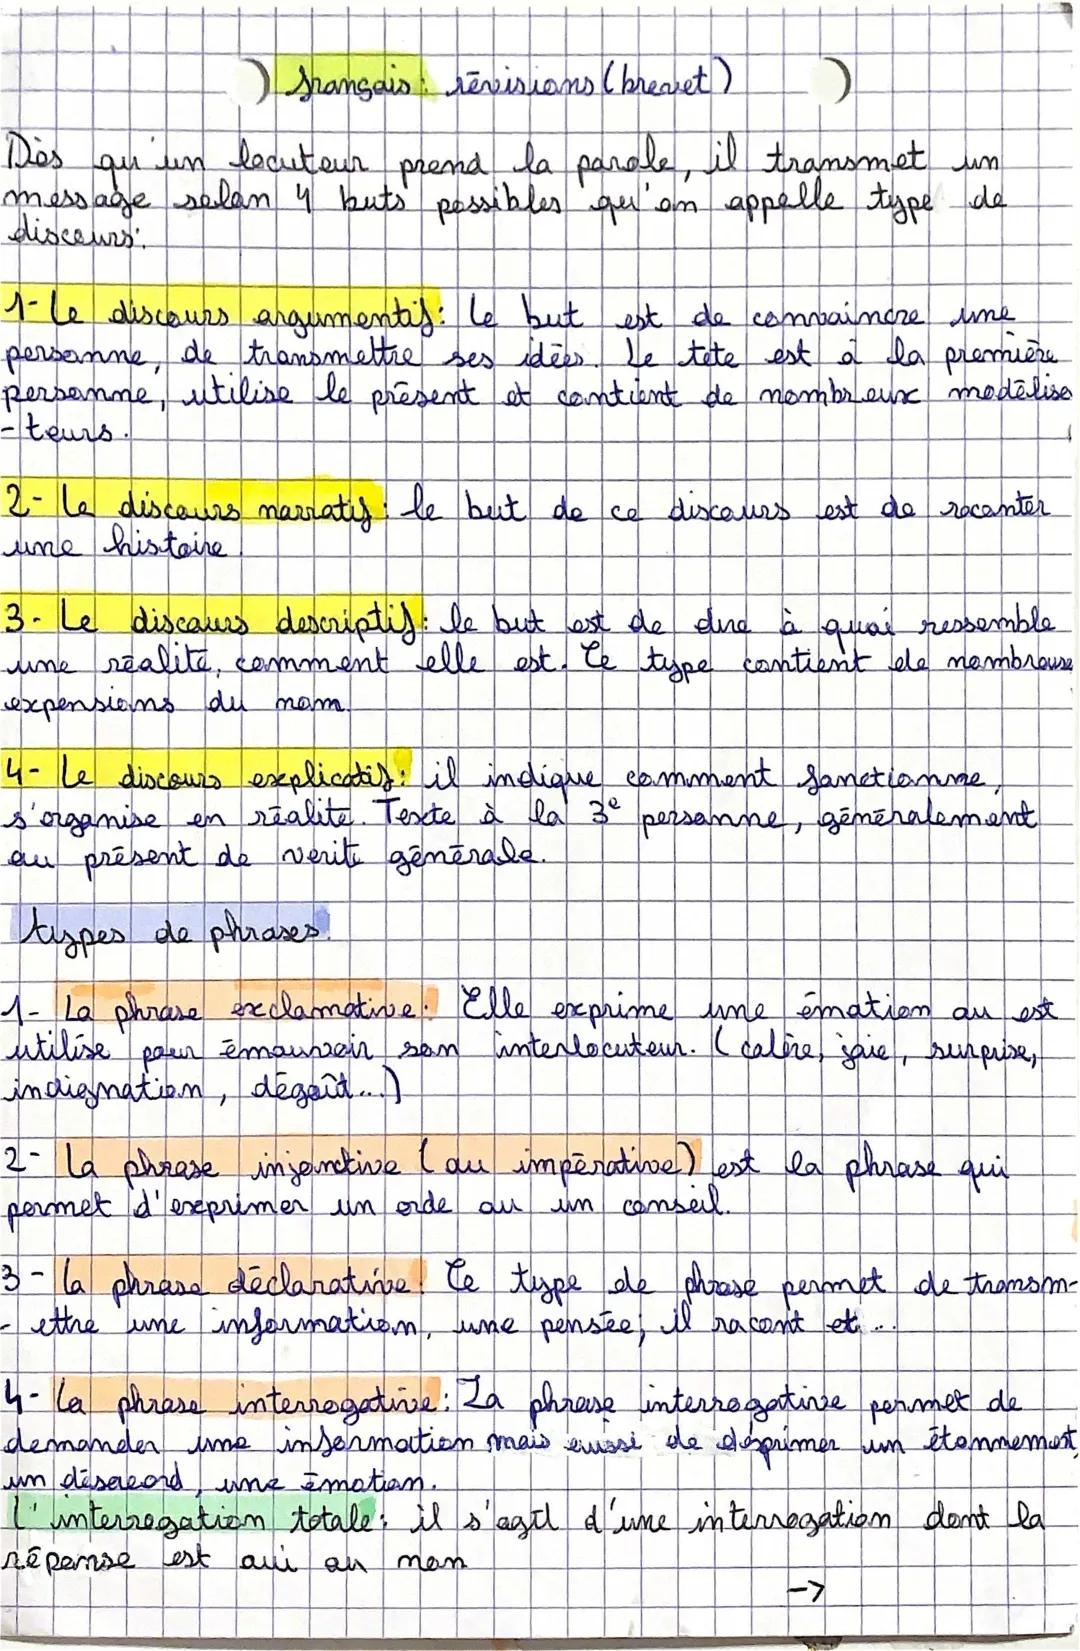 Français : révisions (brevet)
Dès qu'un locuteur prend la parole, il transmet un
message selon 4 buts possibles qu'on appelle type de
discours:
1- Le discours argumentif: Le but est de convaincre une
personne, de transmettre ses idées. Le tete est à la première
personne, utilise le présent et contient de nombreux modélisa
-teurs.
2- Le discours narratif: le but de ce discours est de raconter
une histoire.
3- Le discours descriptif: le but est de dire à quoi ressemble
une réalité, comment elle est. Ce type contient de nombreuse
expensions du nom.
4- Le discours explicatif: il indique comment fonctionne,
s'organise en réalité. Texte à la 3e personne, généralement
au présent de verité générale.
types de phrases.
1- La phrase exclamative: Elle exprime une émotion ou est
utilise pour émouvoir son interlocuteur. (colère, joie, surprise,
indignation, dégoût...)
2- La phrase injonctive (ou impérative) est la phrase qui
permet d'exprimer un orde ou un conseil.
3- la phrase déclarative: Ce type de phrase permet de transm-
-ettre une information, une pensée; il racont et...
4- La phrase interrogative: La phrase interrogative permet de
demander une information mais aussi de éxprimer un étonnement,
un désacord, une émotion.
L'interrogation totale: il s'agit d'une interrogation dont la
réponse est oui ou non
->